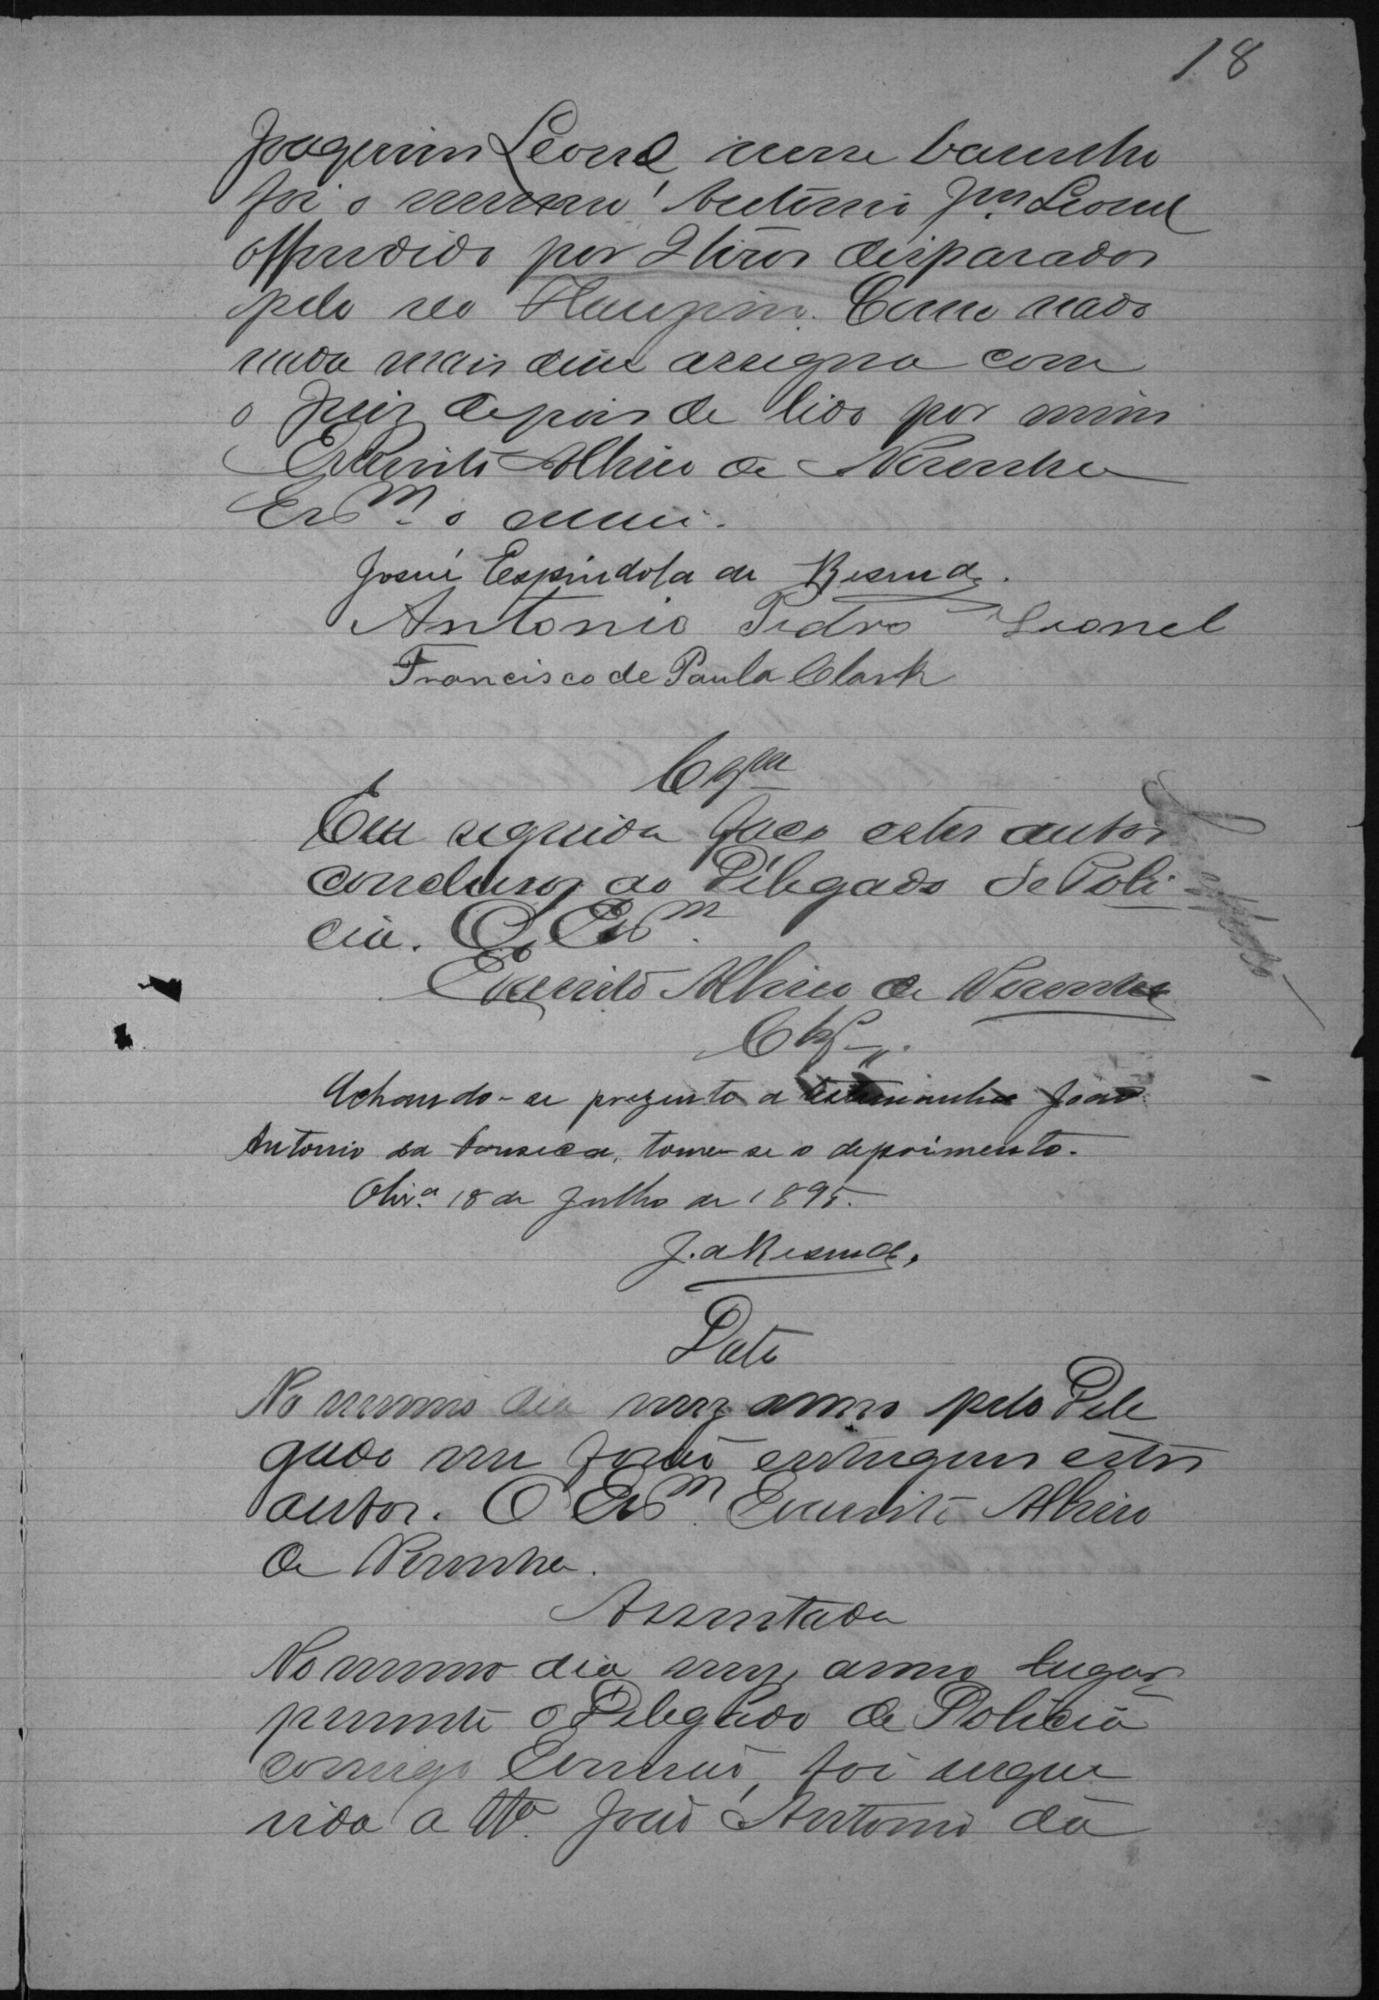 18
Joaquim Leonel nesse barulho
foi o mesmo Antonio Jm Leonel
offendido por 2 tiros disparados
pelo reo Como nada
nada mais disse assigna com
o Juiz depois de lido por mim
Evaristo Albino de Noronha
Esm. o escrevi.
Josué Espindola de Resende.
Antonio Pedro Leonel
Francisco de Paula Clark
Em seguida faço estes autos
conclusos ao Delegado de Poli-
cia. O Esm.
Evaristo Albino de Noronha
Clsª
Achando-se prezente a testemunha João
Antonio da Fonseca, tome-se o depoimento.
Olivª 18 de Julho de 1895.
J. de Resende.
Data
No mesmo dia mez anno pelo Dele
gado me forão entregues estes
autos. O Esm. Evaristo Albino
de Noronha.
Assentada
No mesmo dia mez, anno lugar
perante o Delegado de Policia
comigo Escrivão, foi inque
rida a ttª João Antonio da